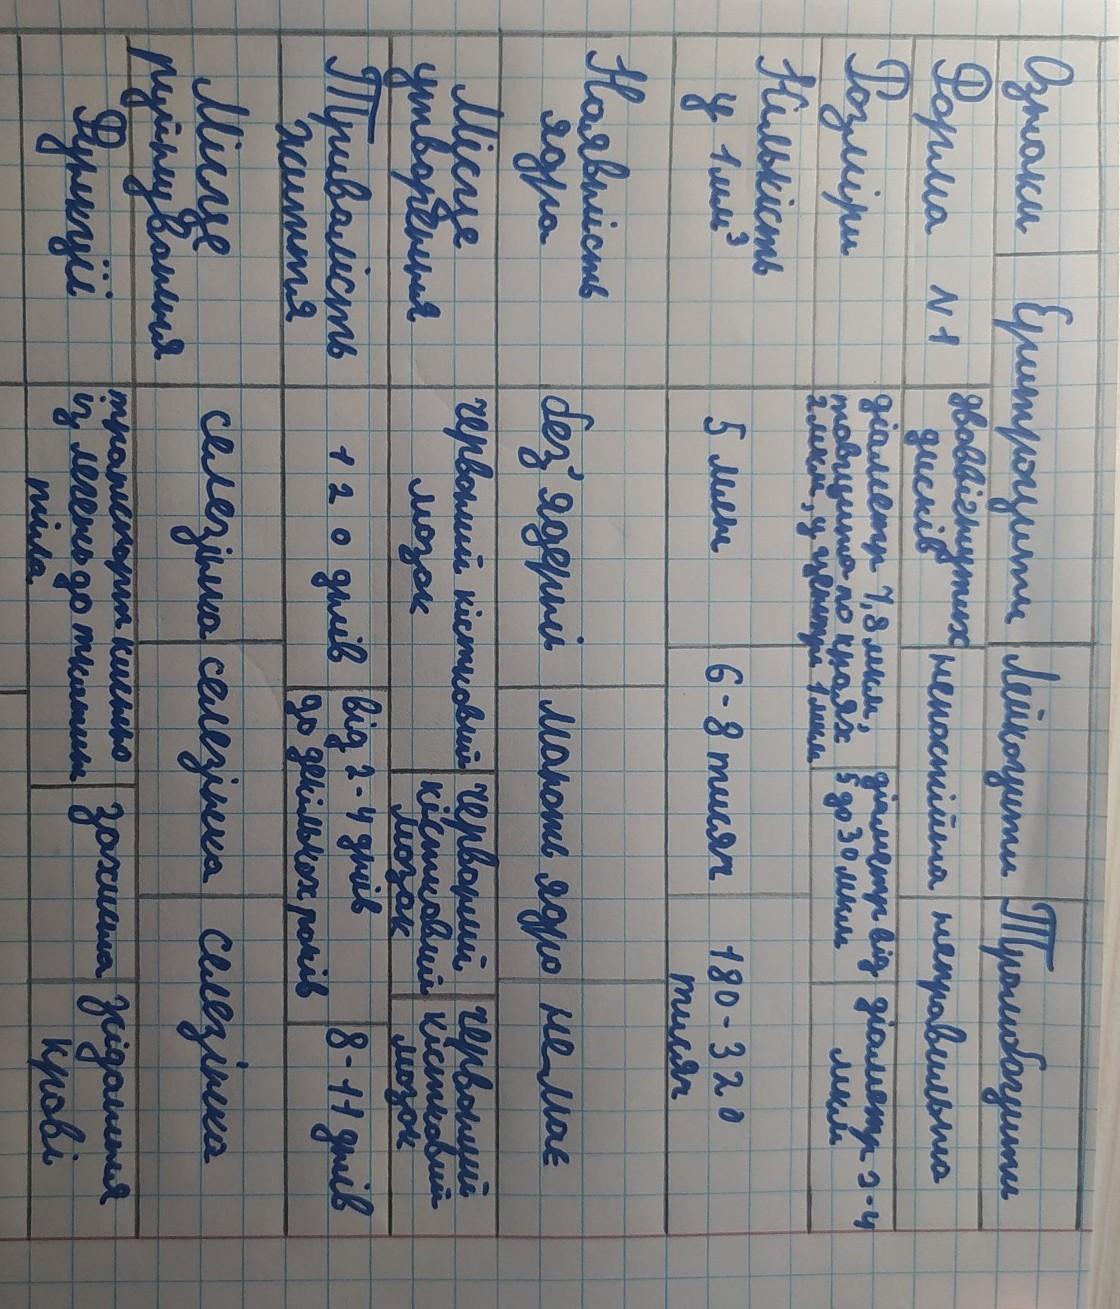 Ознаки Еритроцити Лейкоцити Тромбоцити
Форма №1 двоввігнутих дисків непостійна неправильна
Розміри
діаметр 7,8 мкм,
товщина по краях
2 мкм, у центрі 1 мкм
діаметр від
5 до 30 мкм
діаметр 2-4
мкм
Кількість
у 1 мм³
5 млн
6-8 тисяч
180-320
тисяч
Наявність
ядра
без'ядерні
мають ядро
немає
Місце
утворення
червоний кістковий
мозок
червоний
кістковий
мозок
червоний
кістковий
мозок
Тривалість
життя
120 днів
від 2-4 днів
до декількох років
8-11 днів
Місце
руйнування
селезінка
селезінка
селезінка
Функції
транспорт кисню
із легень до тканин
тіла
захисна
зсідання
крові